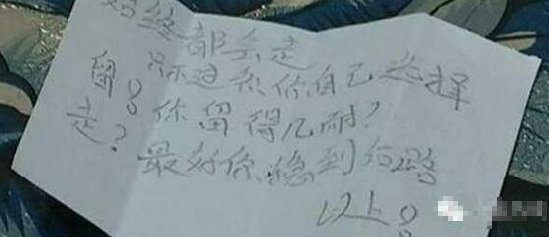 始终都会走
只不过系你自己选择
留！你留得几耐？
走？最好你稳到
以上！